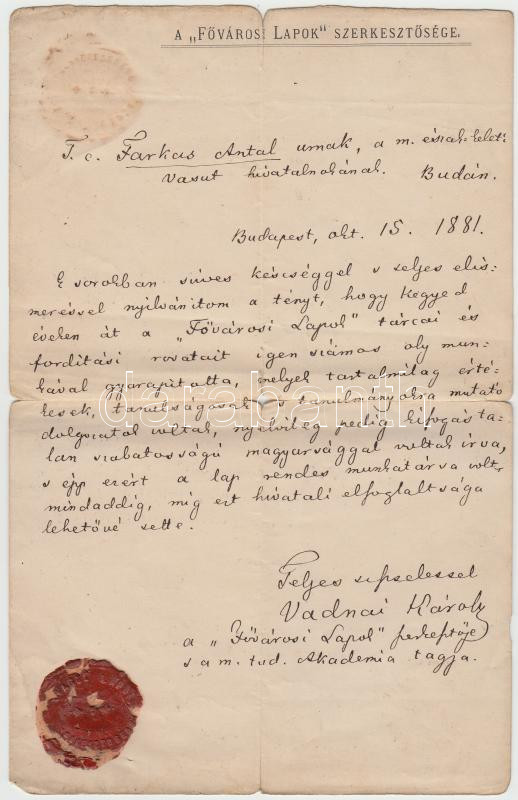 A „FŐVÁROSI LAPOK" SZERKESZTŐSÉGE.
T. c. Farkas Antal urnak, a m. északkeleti
vasut hivatalnokának. Budán.
Budapest, okt. 15. 1881.
E sorokban szives készséggel s teljes elis-
meréssel nyilvánitom a tényt, hogy kegyed
éveken át a „Fővárosi Lapok" tárcai és
forditási rovatait igen számos oly mun-
kával gyarapitotta, melyek tartalmilag érté-
kesek, tanulságosak s tanulmányokra mutató
dolgozatok voltak, nyelvileg pedig kifogásta-
lan szabatosságú magyarsággal voltak irva,
s épp ezért a lap rendes munkatársa volt
mindaddig, mig ezt hivatali elfoglaltsága
lehetővé tette.
Teljes tisztelettel
Vadnai Károly
a „Fővárosi Lapok" szerkesztője
s a m. tud. Akademia tagja.
darabanth